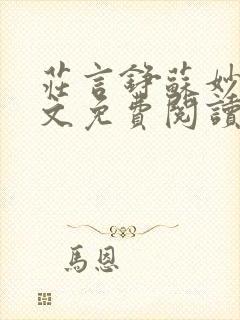 莊言錚蘇妙
文免費閱讀
馬恩